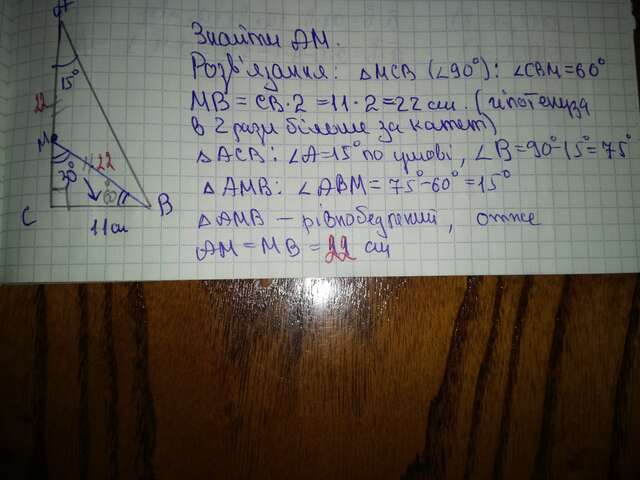 C
M
22
A
30°
15°
22
60°
11 см
B
Знайти AM.
Розв'язання: △MCB (∠90°): ∠CBM=60°
MB = CB·2 = 11·2=22 см. (гіпотенуза
в 2 рази більше за катет)
△ACB: ∠A=15° по умові, ∠B=90°-15°=75°
△AMB: ∠ABM=75°-60°=15°
△AMB – рівнобедрений, отже
AM = MB = 22 см